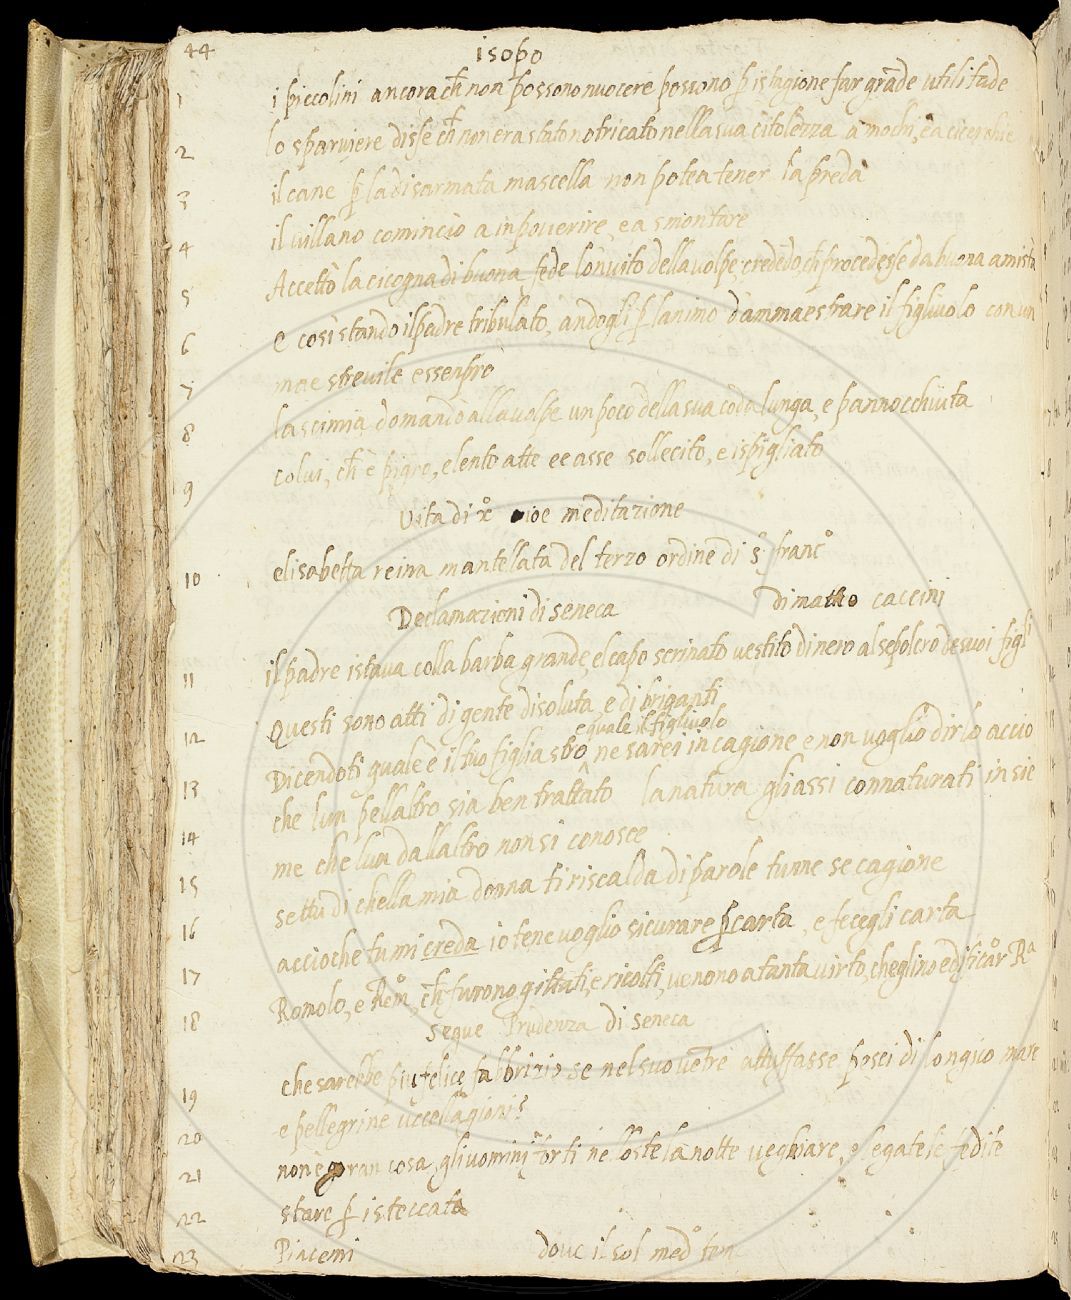 44 isopo
1 i piccolini ancora ch̃ non possono nuocere possono p istagione far grãde utilitade
2 lo sparviere disse ch̃ non era stato notricato nella sua citolezza a mochi, e a cicerchie
3 il cane p la disarmata mascella non potea tener la preda
4 il villano cominciò a inpoverire, e a smontare
5 Accettò la cicogna di buona fede lonvito della volpe, credẽdo, ch̃ procedesse da buona amistà
6 e cosi stando il padre tribulato, andogli p lanimo dammaestrare il figlivolo con un
7 maestrevile essenpro
8 la scimia domandò alla volpe un poco della sua coda lunga, e pannocchiuta
9 colui, ch̃ è pigro, e lento atte ee asse sollecito, e ispigliato
Vita di x̃ cioe meditazione
10 elisabetta reina mantellata del terzo ordine di s. franc.º
Declamazioni di seneca di matteo caccini
11 il padre istava colla barba grande, el capo scrinato vestito di nero al sepolcro de suoi figli
12 Questi sono atti di gente disoluta e di briganti
e quale il figlivolo
13 Dicendoti quale è il tuo figliastro ne sarei in cagione e non voglio dirlo accio
che lun pellaltro sia ben trattato la natura gliassi connaturati insie
14 me che lun dallaltro non si conosce
15 settu di chella mia donna ti riscalda di parole tunne se cagione
16 accioche tu mi creda io tene voglio sicurare p carta, e fecegli carta
17 Romolo, e Rem, ch̃ furono gittati, e ricolti, venono a tanta virtò, cheglino edificâr Rª
18 segue Prudenza di seneca
19 che sarebbe piu felice fabbrizio se nel suo vẽtre attuffasse pesci di longico mare
20 e pellegrine uccellagioni?
21 non è gran cosa, gli vomini forti ne loste la notte veghiare, e legatele fedite
22 stare p isteccata
23 Piacemi dove il sol